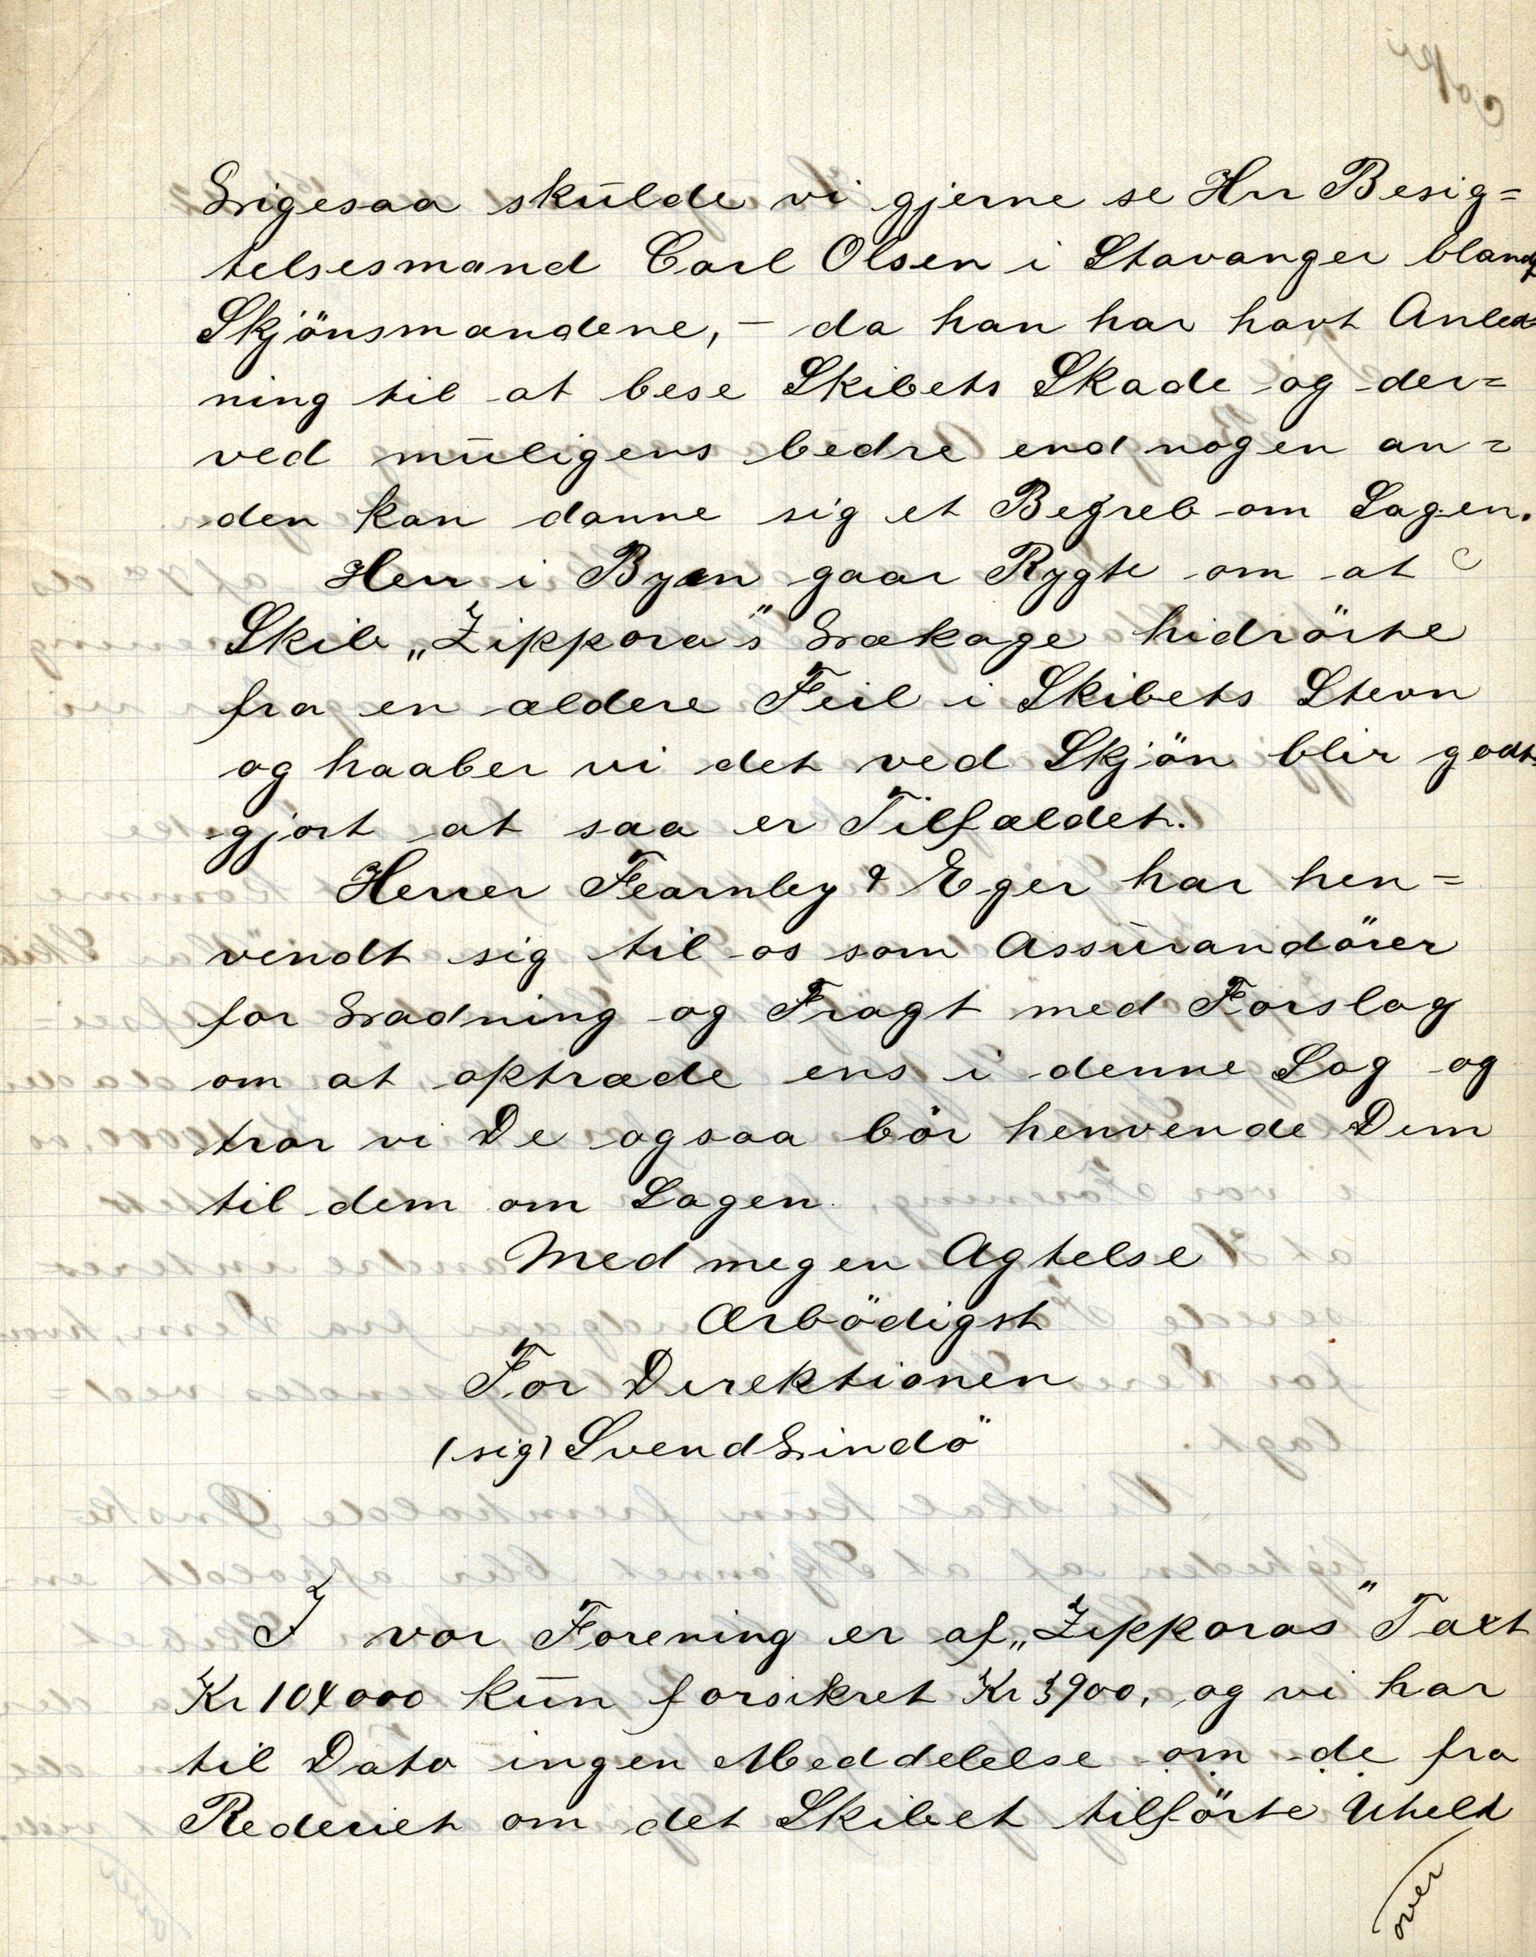 Ligesaa skulde vi gjerne se Hrr Besig=
telsesmand Carl Olsen i Stavanger blandt
Skjönsmændene, – da han har havt Anled-
ning til at bese Skibets Skade og der=
ved muligens bedre end nogen an=
den kan danne sig et Begreb om Sagen.
Herr i Byen gaar Rygte om at
Skib „Zippora's" Lækage hidrörte
fra en ældere Feil i Skibets Stevn
og haaber vi det ved Skjön blir godt-
gjort at saa er Tilfældet.
Herrer Fearnley & Eger har hen=
vendt sig til os som Assurandörer
for Ladning og Fragt med Forslag
om at optræde ens i denne Sag og
tror vi De ogsaa bör henvende Dem
til dem om Sagen.
Med megen Agtelse
Ærbödigst
For Direktionen
(sig) Svend Lindö
I vor Forening er af „Zipporas" Taxt
Kr 104000 kun forsikret Kr 3900, og vi har
til Dato ingen Meddelelse om de fra
Rederiet om det Skibet tilförte Uheld
over